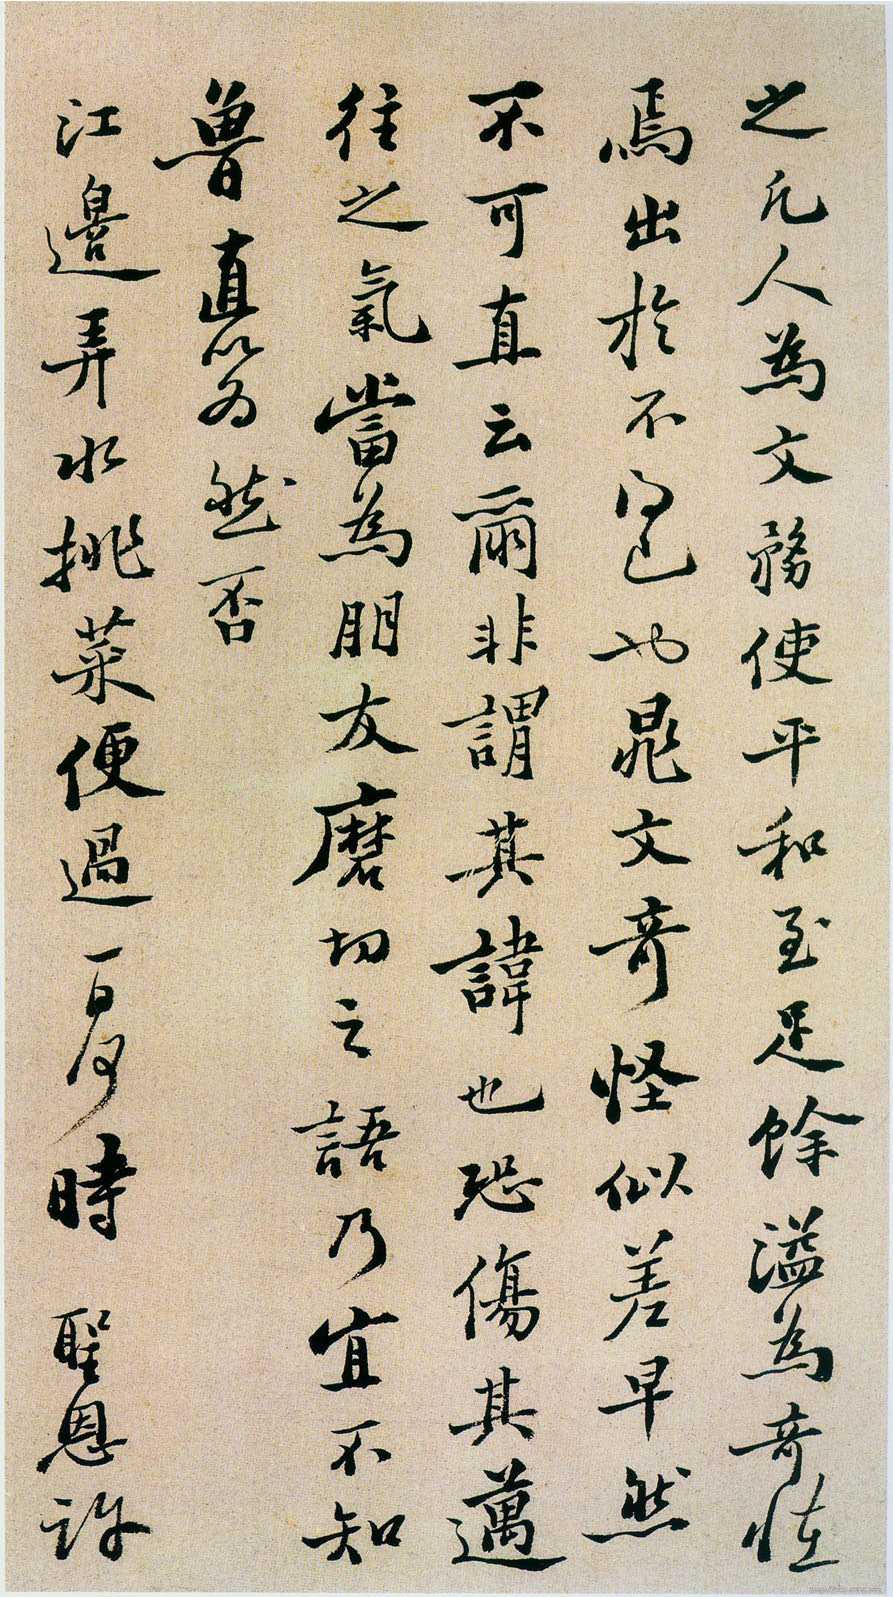 之凡人為文務使平和至足餘溢為奇怪
焉出於不得已也晁文奇怪似差早然
不可直云爾非謂其諱也恐傷其邁
往之氣當為朋友磨切之語乃宜不知
魯直以為然否
江邊弄水挑菜便過一日夏時 聖恩許